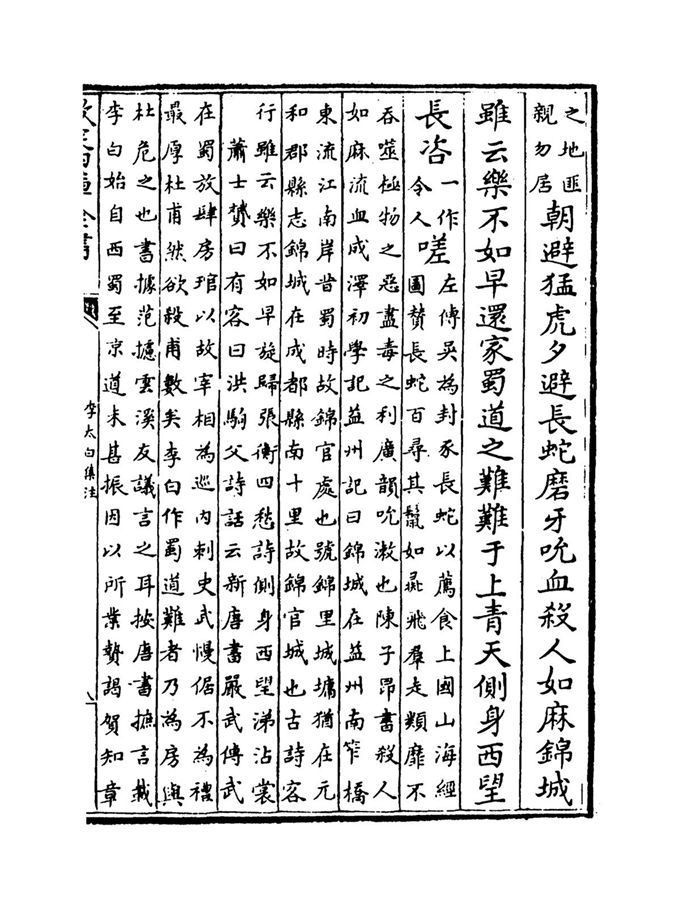 之地匪
親勿居
朝避猛虎夕避長蛇磨牙吮血殺人如麻錦城
雖云樂不如早還家蜀道之難難于上青天側身西望
長咨
一作
令人
嗟
左傳吳為封豕長蛇以薦食上國山海經
圖贊長蛇百尋其鬣如彘飛羣走類靡不
吞噬極物之惡盡毒之利廣韻吮漱也陳子昂書殺人
如麻流血成澤初學記益州記曰錦城在益州南笮橋
東流江南岸昔蜀時故錦官處也號錦里城墉猶在元
和郡縣志錦城在成都縣南十里故錦官城也古詩容
行雖云樂不如早旋歸張衡四愁詩側身西望涕沾裳
蕭士贇曰有容曰洪駒父詩話云新唐書嚴武傳武
在蜀放肆房琯以故宰相為巡內刺史武慢倨不為禮
最厚杜甫然欲殺甫數矣李白作蜀道難者乃為房與
杜危之也書據范攄雲溪友議言之耳按唐書摭言載
李白始自西蜀至京道未甚振因以所業贄謁賀知章
李太白集注